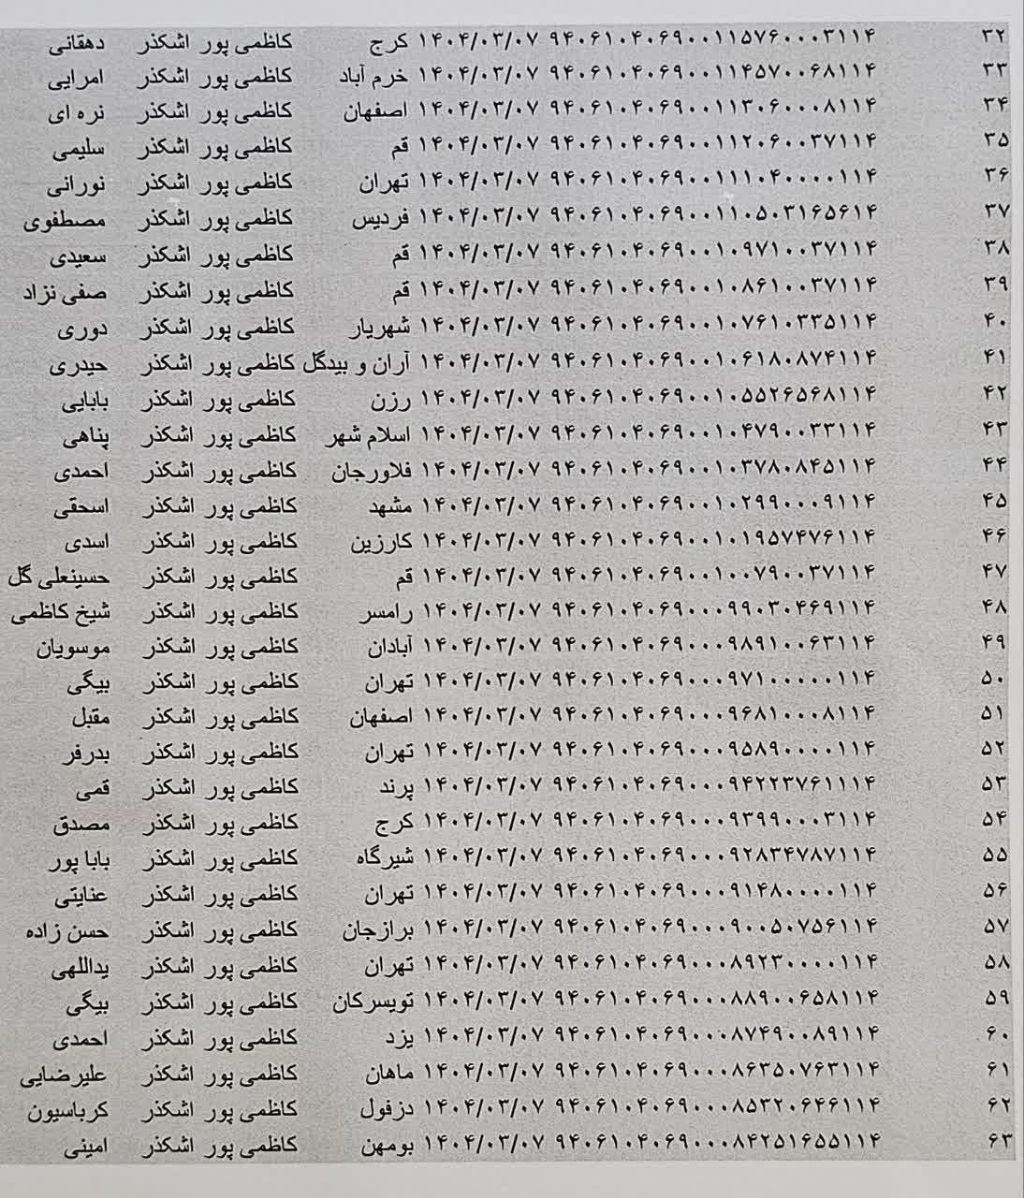 ۳۲ ۹۴۰۶۱۰۴۰۶۹۰۰۱۱۵۷۶۰۰۰۳۱۱۴ ۱۴۰۴/۰۳/۰۷ کرج کاظمی پور اشکذر دهقانی
۳۳ ۹۴۰۶۱۰۴۰۶۹۰۰۱۱۴۵۷۰۰۶۸۱۱۴ ۱۴۰۴/۰۳/۰۷ خرم آباد کاظمی پور اشکذر امرایی
۳۴ ۹۴۰۶۱۰۴۰۶۹۰۰۱۱۳۰۶۰۰۰۸۱۱۴ ۱۴۰۴/۰۳/۰۷ اصفهان کاظمی پور اشکذر نره ای
۳۵ ۹۴۰۶۱۰۴۰۶۹۰۰۱۱۲۰۶۰۰۳۷۱۱۴ ۱۴۰۴/۰۳/۰۷ قم کاظمی پور اشکذر سلیمی
۳۶ ۹۴۰۶۱۰۴۰۶۹۰۰۱۱۱۰۴۰۰۰۰۱۱۴ ۱۴۰۴/۰۳/۰۷ تهران کاظمی پور اشکذر نورانی
۳۷ ۹۴۰۶۱۰۴۰۶۹۰۰۱۱۰۵۰۳۱۶۵۶۱۴ ۱۴۰۴/۰۳/۰۷ فردیس کاظمی پور اشکذر مصطفوی
۳۸ ۹۴۰۶۱۰۴۰۶۹۰۰۱۰۹۷۱۰۰۳۷۱۱۴ ۱۴۰۴/۰۳/۰۷ قم کاظمی پور اشکذر سعیدی
۳۹ ۹۴۰۶۱۰۴۰۶۹۰۰۱۰۸۶۱۰۰۳۷۱۱۴ ۱۴۰۴/۰۳/۰۷ قم کاظمی پور اشکذر صفی نزاد
۴۰ ۹۴۰۶۱۰۴۰۶۹۰۰۱۰۷۶۱۰۳۳۵۱۱۴ ۱۴۰۴/۰۳/۰۷ شهریار کاظمی پور اشکذر دوری
۴۱ ۹۴۰۶۱۰۴۰۶۹۰۰۱۰۶۱۸۰۸۷۴۱۱۴ ۱۴۰۴/۰۳/۰۷ آران و بیدگل کاظمی پور اشکذر حیدری
۴۲ ۹۴۰۶۱۰۴۰۶۹۰۰۱۰۵۵۲۶۵۶۸۱۱۴ ۱۴۰۴/۰۳/۰۷ رزن کاظمی پور اشکذر بابایی
۴۳ ۹۴۰۶۱۰۴۰۶۹۰۰۱۰۴۷۹۰۰۳۳۱۱۴ ۱۴۰۴/۰۳/۰۷ اسلام شهر کاظمی پور اشکذر پناهی
۴۴ ۹۴۰۶۱۰۴۰۶۹۰۰۱۰۳۷۸۰۸۴۵۱۱۴ ۱۴۰۴/۰۳/۰۷ فلاورجان کاظمی پور اشکذر احمدی
۴۵ ۹۴۰۶۱۰۴۰۶۹۰۰۱۰۲۹۹۰۰۰۹۱۱۴ ۱۴۰۴/۰۳/۰۷ مشهد کاظمی پور اشکذر اسحقی
۴۶ ۹۴۰۶۱۰۴۰۶۹۰۰۱۰۱۹۵۷۴۷۶۱۱۴ ۱۴۰۴/۰۳/۰۷ کارزین کاظمی پور اشکذر اسدی
۴۷ ۹۴۰۶۱۰۴۰۶۹۰۰۱۰۰۷۹۰۰۳۷۱۱۴ ۱۴۰۴/۰۳/۰۷ قم کاظمی پور اشکذر حسینعلی گل
۴۸ ۹۴۰۶۱۰۴۰۶۹۰۰۰۹۹۰۳۰۴۶۹۱۱۴ ۱۴۰۴/۰۳/۰۷ رامسر کاظمی پور اشکذر شیخ کاظمی
۴۹ ۹۴۰۶۱۰۴۰۶۹۰۰۰۹۸۹۱۰۰۶۳۱۱۴ ۱۴۰۴/۰۳/۰۷ آبادان کاظمی پور اشکذر موسویان
۵۰ ۹۴۰۶۱۰۴۰۶۹۰۰۰۹۷۱۰۰۰۰۰۱۱۴ ۱۴۰۴/۰۳/۰۷ تهران کاظمی پور اشکذر بیگی
۵۱ ۹۴۰۶۱۰۴۰۶۹۰۰۰۹۶۸۱۰۰۰۸۱۱۴ ۱۴۰۴/۰۳/۰۷ اصفهان کاظمی پور اشکذر مقبل
۵۲ ۹۴۰۶۱۰۴۰۶۹۰۰۰۹۵۸۹۰۰۰۰۱۱۴ ۱۴۰۴/۰۳/۰۷ تهران کاظمی پور اشکذر بدرفر
۵۳ ۹۴۰۶۱۰۴۰۶۹۰۰۰۹۴۲۲۳۷۶۱۱۱۴ ۱۴۰۴/۰۳/۰۷ پرند کاظمی پور اشکذر قمی
۵۴ ۹۴۰۶۱۰۴۰۶۹۰۰۰۹۳۹۹۰۰۰۳۱۱۴ ۱۴۰۴/۰۳/۰۷ کرج کاظمی پور اشکذر مصدق
۵۵ ۹۴۰۶۱۰۴۰۶۹۰۰۰۹۲۸۳۴۷۸۷۱۱۴ ۱۴۰۴/۰۳/۰۷ شیرگاه کاظمی پور اشکذر بابا پور
۵۶ ۹۴۰۶۱۰۴۰۶۹۰۰۰۹۱۴۸۰۰۰۰۱۱۴ ۱۴۰۴/۰۳/۰۷ تهران کاظمی پور اشکذر عنایتی
۵۷ ۹۴۰۶۱۰۴۰۶۹۰۰۰۹۰۰۵۰۷۵۶۱۱۴ ۱۴۰۴/۰۳/۰۷ برازجان کاظمی پور اشکذر حسن زاده
۵۸ ۹۴۰۶۱۰۴۰۶۹۰۰۰۸۹۲۳۰۰۰۰۱۱۴ ۱۴۰۴/۰۳/۰۷ تهران کاظمی پور اشکذر یداللهی
۵۹ ۹۴۰۶۱۰۴۰۶۹۰۰۰۸۸۹۰۰۶۵۸۱۱۴ ۱۴۰۴/۰۳/۰۷ تویسرکان کاظمی پور اشکذر بیگی
۶۰ ۹۴۰۶۱۰۴۰۶۹۰۰۰۸۷۴۹۰۰۸۹۱۱۴ ۱۴۰۴/۰۳/۰۷ یزد کاظمی پور اشکذر احمدی
۶۱ ۹۴۰۶۱۰۴۰۶۹۰۰۰۸۶۳۵۰۷۶۳۱۱۴ ۱۴۰۴/۰۳/۰۷ ماهان کاظمی پور اشکذر علیرضایی
۶۲ ۹۴۰۶۱۰۴۰۶۹۰۰۰۸۵۳۲۰۶۴۶۱۱۴ ۱۴۰۴/۰۳/۰۷ دزفول کاظمی پور اشکذر کرباسیون
۶۳ ۹۴۰۶۱۰۴۰۶۹۰۰۰۸۴۲۵۱۶۵۵۱۱۴ ۱۴۰۴/۰۳/۰۷ بومهن کاظمی پور اشکذر امینی